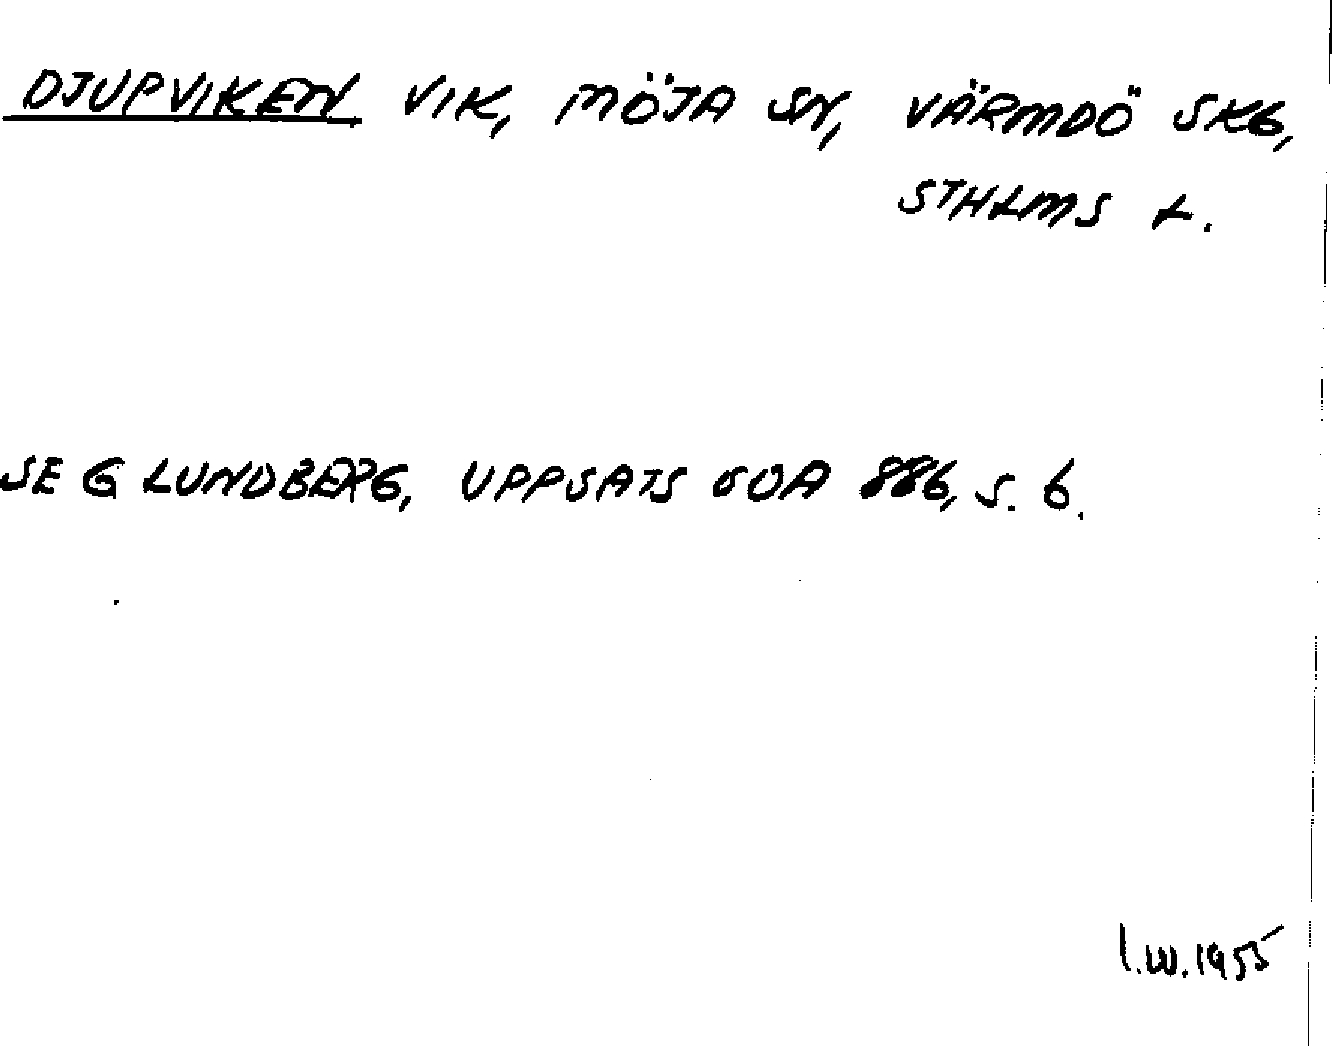 DJUPVIKEN VIK, MÖJA SN, VÄRMDÖ SKG,
STHLMS L.
SE G LUNDBERG, UPPSATS OOA 886, S. 6.
I.W. 1955